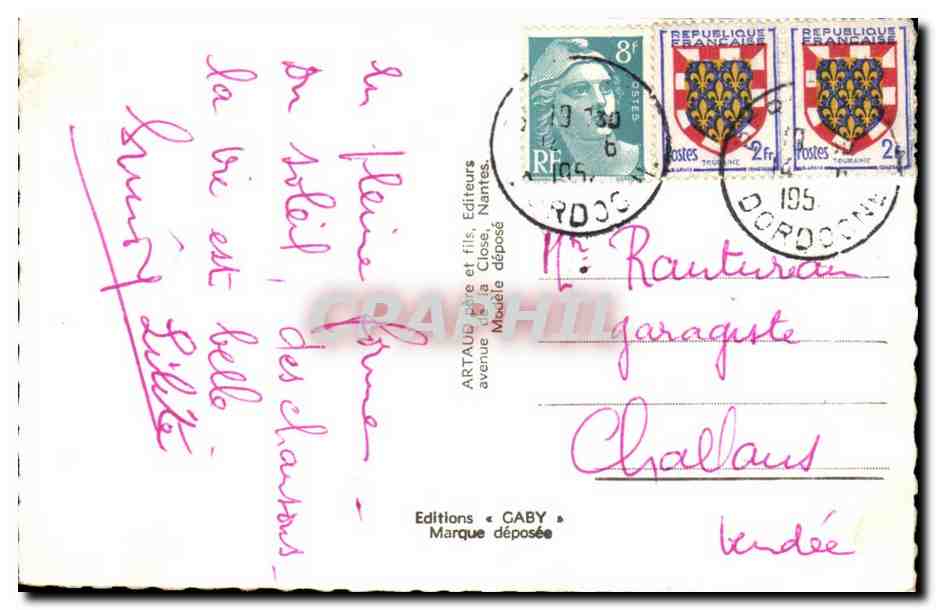 En pleine forme -
Du soleil, des chansons -
la vie est belle
Lilité
8f
POSTES
RF
REPUBLIQUE
FRANÇAISE
Postes
TOURAINE
2Fr
REPUBLIQUE
FRANÇAISE
Postes
TOURAINE
2Fr
19 30
6
195
DORDOGNE
195
DORDOGNE
ARTAUD père et fils, Editeurs
avenue de la Close, Nantes.
Modèle déposé
CPAPHIL
Mr. Rautureau
garagiste
Challans
Vendée
Editions « GABY »
Marque déposée